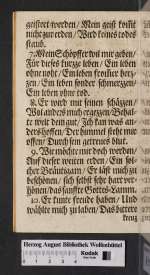 geistert worden / Mein geist kommt
nicht zur erden / Wird keines todes
staub.
7. Mein Schöpffer wil mir geben /
Für dieses kurtze leben / Ein leben
ohne noht / Ein leben freyer her-
zen / Ein leben sonder schmertzen /
Ein leben ohne tod.
8. Er wird mit seinen schätzen /
Wol anders mich ergetzen / Behal-
te welt dein gut / Ich kan was an-
ders hoffen / Der himmel steht mir
offen / Durch sein getreues blut.
9. Wie möchte mir doch werden /
Auf dieser weiten erden / Ein sol-
cher Bräutgam / Er läst mich zu
beschönen / sich selbst sehr hart ver-
hönen / das sanffte Gottes-Lamm.
10. Er kunte freude haben / Und
wählte mich zu laben / Das bittere
kreuz
Herzog August Bibliothek Wolfenbüttel